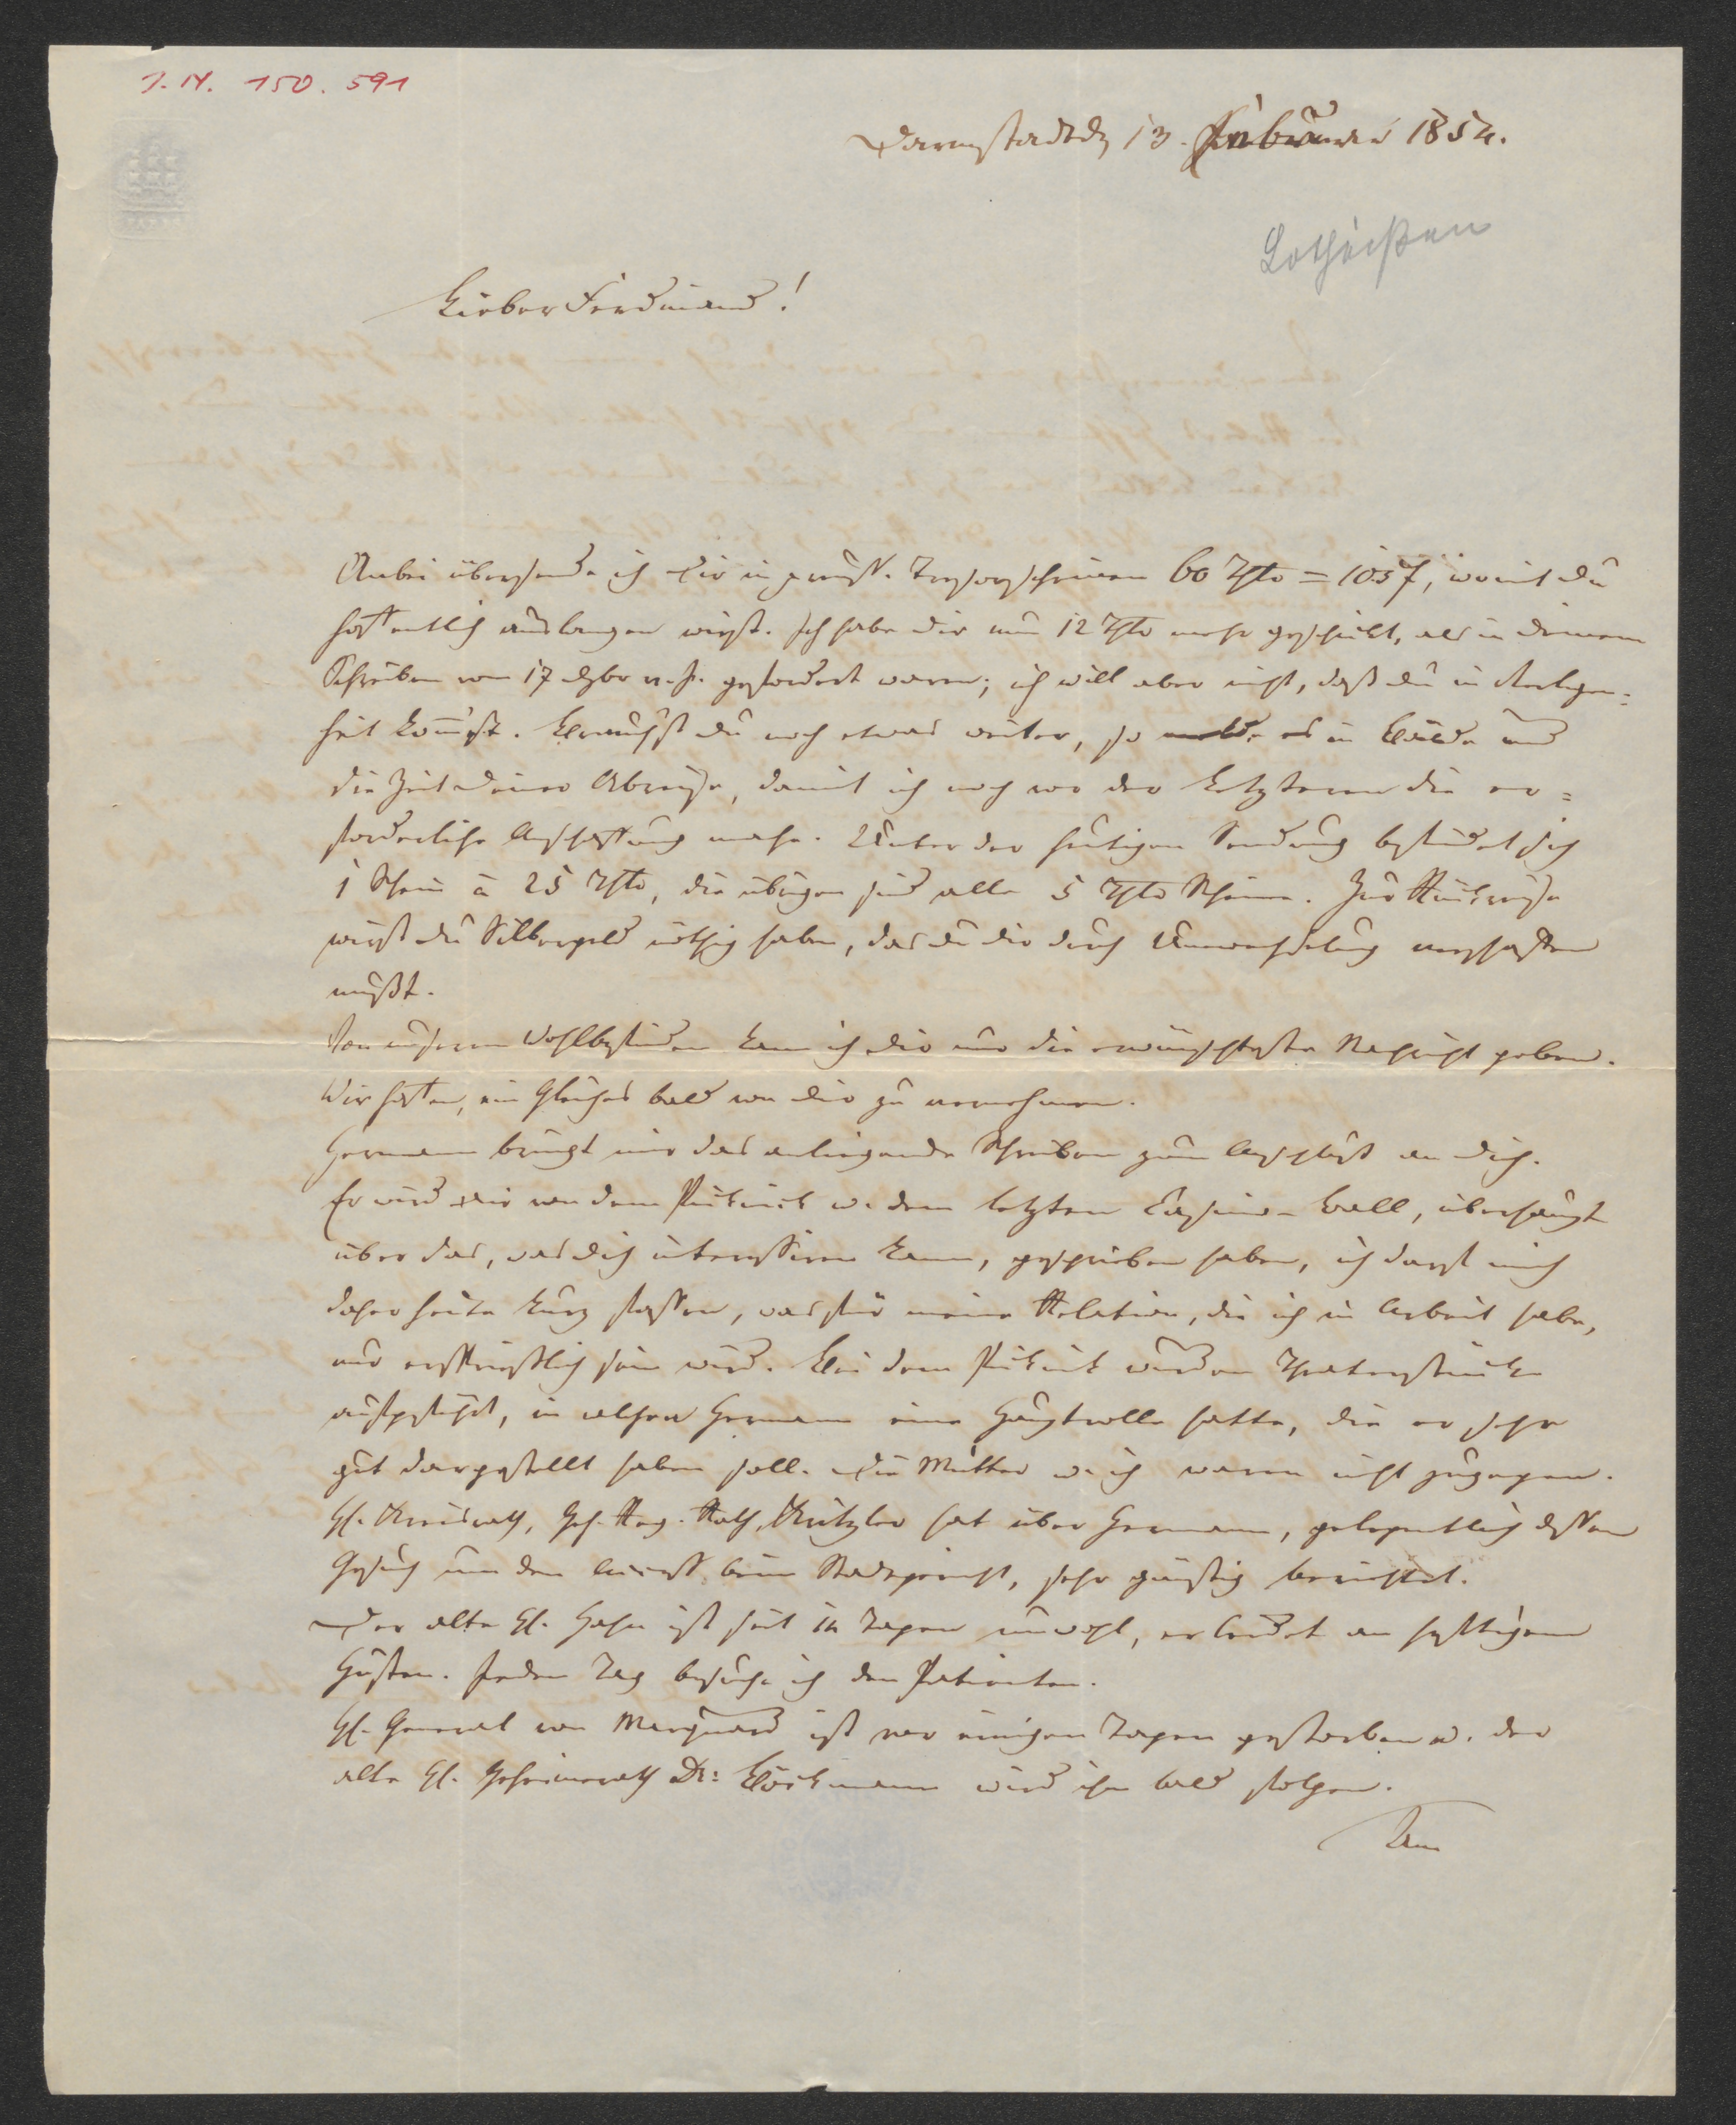 I. N. 150.591
Darmstadt d 13. Februar 1854.
Lotheißen
Lieber Ferdinand!
Anbei übersende ich Dir in preuß. Tresorscheinen 60 Thlr = 105 f, womit du
hoffentlich auslangen wirst. Ich habe dir nun 12 Thlr mehr geschickt, als in deinem
Schreiben vom 17 dzbr v. J. gefordert waren; ich will aber nicht, daß du in Verlegen=
heit kommst. Brauchst du noch etwas weiter, so melde es in Bälde und
die Zeit deiner Abreise, damit ich noch vor der letzteren die er=
forderliche Anschaffung mache. Unter der heutigen Sendung befindet sich
1 Schein à 25 Thlr, die übrigen sind alle 5 Thlr Scheine. Zur Rückreise
wirst du Silbergeld nöthig haben, das du dir durch Umwechslung verschaffen
mußt.
Von unserem Wohlbefinden kann ich dir nur die erwünschteste Nachricht geben.
Wir hoffen, ein Gleiches bald von dir zu vernehmen.
Hermann bringt mir das anliegende Schreiben zum Anschluß an dich.
Er wird dir von dem Pikenik u. dem letzten Casino-Ball, überhaupt
über das, was dich interessiren kann, geschrieben haben, ich darf mich
daher heute kurz fassen, was für meine Relation, die ich in Arbeit habe,
nur ersprießlich sein wird. Bei dem Pikenik wurden Theaterstücke
aufgeführt, in welchen Hermann eine Hauptrolle hatte, die er sehr
gut dargestellt haben soll. Die Mutter u. ich waren nicht zugegen.
H. Kreisrath, Geh. Reg. Rath, Kritzler hat über Hermann, gelegentlich dessen
Gesuch um den Access beim Stadtgericht, sehr günstig berichtet.
Der alte H. Hahn ist seit 14 Tagen unwohl, er leidet an heftigem
Husten. Jeden Tag besuche ich den Patienten.
H. General von Marquard ist vor einigen Tagen gestorben u. der
alte H. Geheimerath Dr: Böckmann wird ihm bald folgen.
Am